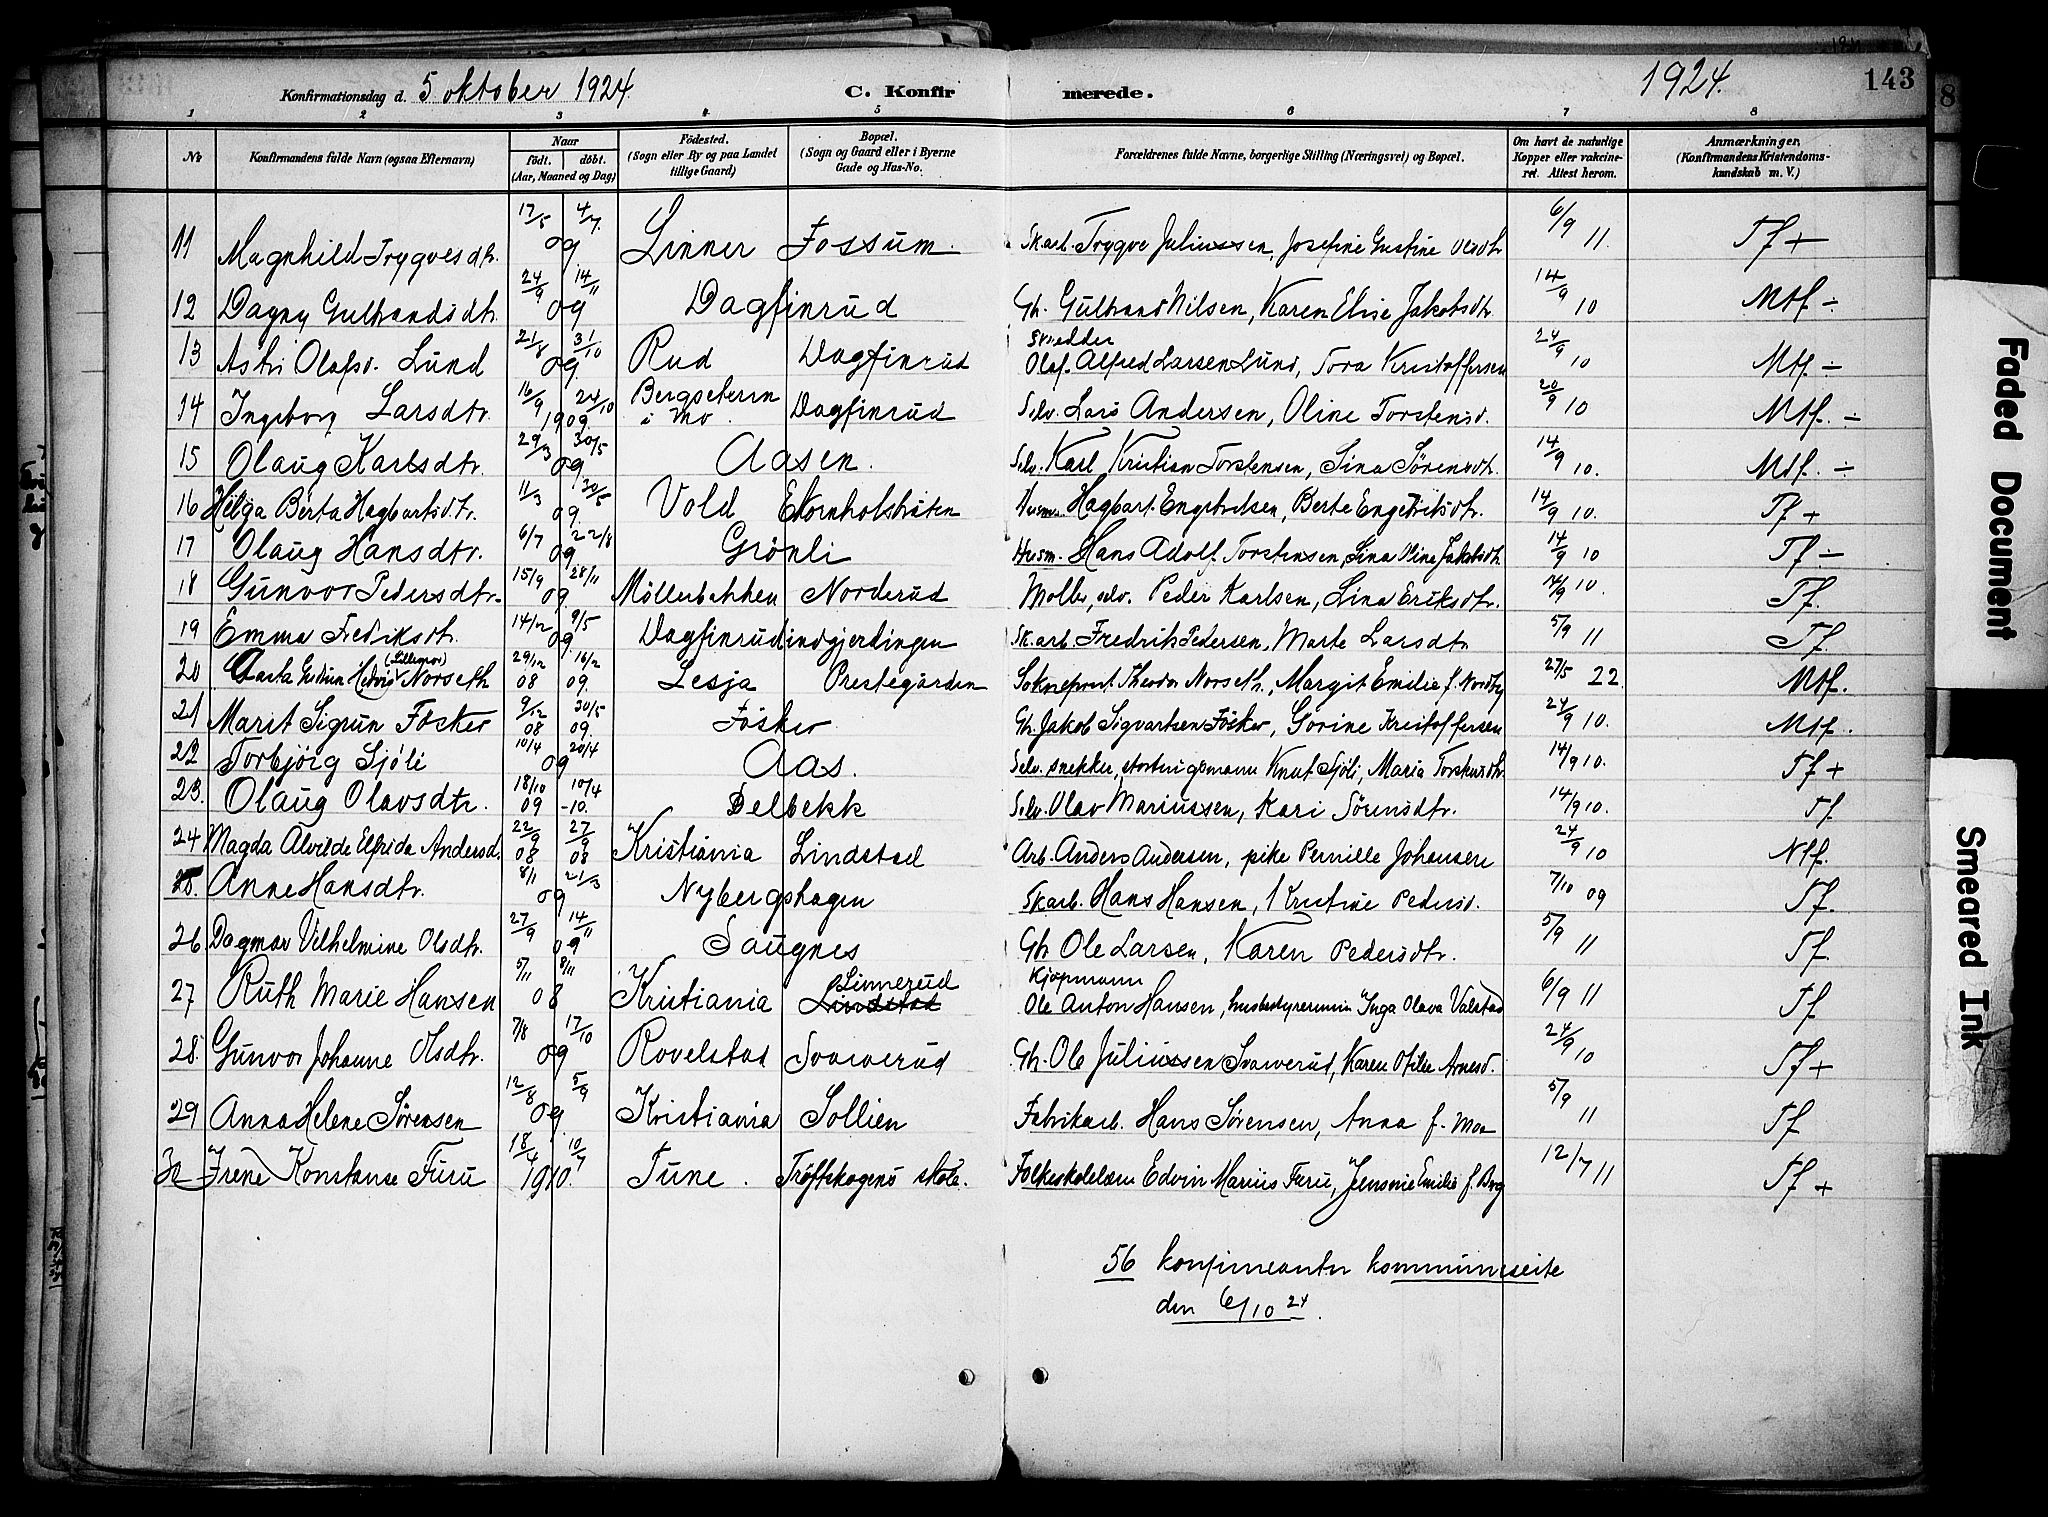 Konfirmationsdag d. 5 oktober 1924 C. Konfir merede. 1924. 143
1 2 3 4 5 6 7 8
No Konfirmandens fulde Navn (ogsaa Efternavn) Naar født. døbt. (Aar, Maaned og Dag) Fødested. (Sogn eller By og paa Landet tillige Gaard) Bopæl. (Sogn og Gaard eller i Byerne Gade og Hus-No. Forældrenes fulde Navne, borgerlige Stilling (Næringsvei) og Bopæl. Om havt de naturlige Kopper eller vakcineret. Attest herom. Anmærkninger. (Konfirmandens Kristendomskundskab m. V.)
11 Magnhild Trygvesdtr. 17/5 4/7 09 Linner Fossum. Skarb. Trygve Juliussen, Josefine Gustine Olsdtr 6/9 11. Tf +
12 Dagny Gulbrandsdtr. 24/9 14/11 09 Dagfinrud Gbr. Gulbrand Nilsen, Karen Elise Jakobsdtr. 14/9 10 Mtf ÷
13 Astri Olafsd. Lund 21/8 31/10 09. Rud Dagfinrud Snedker Olaf Alfred Larsen Lund, Tora Kristoffersen 24/9 10 Mtf. ÷
14 Ingeborg Larsdtr. 16/9 24/10 1909. Bergseteren i Mo. Dagfinrud Selv. Lars Andersen, Oline Torstensd. 20/9 10 Mtf. ÷
15 Olaug Karlsdtr. 29/3 30/5 09 Aasen. Selv. Karl Kristian Torstensen, Lina Sörensdtr. 14/9 10. Mtf. ÷
16 Helga Berta Hagbartsdtr. 11/3 30/5 09. Vold Ekornholshøten Husm. Hagbart Engebretsen, Berte Engebretsdtr. 14/9 10. Tf +
17 Olaug Hansdtr. 6/7 22/8 09 Grönli Husm. Hans Adolf Torstensen, Lina Oline Jakobsdtr. 14/9 10 Tf ÷
18 Gunvor Pedersdtr. 15/9 28/11 09. Möllerbakken Norderud Møller, selv. Peder Karlsen, Lina Eriksdtr. 10. Tf.
19 Emma Fredriksdtr. 14/12 9/5 09. Dagfinrudindgjerdingen Sk.arb. Fredrik Pedersen, Marte Larsdtr 5/9 11 Tf.
20 Aasta Gudrun Hedvig (Lillemor) Norseth 29/12 08 16/2 09. Lesja Prestegården Sokneprest Theodor Norseth, Margit Emilie f. Nordby 27/5 22. Mtf.
21 Marit Sigrun Fösker 9/12 08 30/5 09. Fösker Gbr. Jakob Sigvartsen Fösker, Gorine Kristoffersen 24/9 10. Mtf.
22 Torbjörg Sjöli 10/4 20/4 09 Aas. Selv. snekker, stortingsmann Knut Sjöli, Maria Torstensdtr. 14/9 10. Tf +
23. Olaug Olavsdtr. 18/10 09 10/4 -10. Delbekk Selv. Olav Mariussen, Kari Sörensdtr. 14/9 10. Tf.
24 Magda Alvilde Elfrida Andersd. 22/9 08 27/9 08 Kristiania Lindstad Arb. Anders Andersen, pike Pernille Johansen 24/9 10 Ntf.
25. Anne Hansdtr. 8/1 21/3 09 Nybergshagen Skarb. Hans Hansen, Kristine Pedersd. 7/10 09 Tf.
26 Dagmar Vilhelmine Olsdtr. 27/9 14/11 09 Saugnes Gbr Ole Larsen, Karen Pedersdtr. 5/9 11 Tf.
27 Ruth Marie Hansen 5/11 8/11 08 Kristiania Linnerud Lindstad Kjøpmann Ole Anton Hansen, husbestyrerinne Inga Olava Valstad 6/9 11 Tf.
28. Gunvor Johanne Olsdtr. 7/8 17/10 09 Rovelstad Svarverud Gbr. Ole Juliussen Svarverud, Karen Otilie Arnesd. 24/9 10 Tf +
29 Anna Helene Sørensen 12/8 5/9 09. Kristiania Sollien Fabrikarb. Hans Sørensen, Anna f. Moe 5/9 11 Tf
30 Irene Konstanse Furu 18/4 10/7 1910. Tune. Tröftskogens skole. Folkeskolelærer Edvin Marius Furu, Jensine Emilie f. Berg 12/7 11 Tf +
56 konfirmanter kommuniserte
den 6/10 24.
Faded Document
Smeared Ink